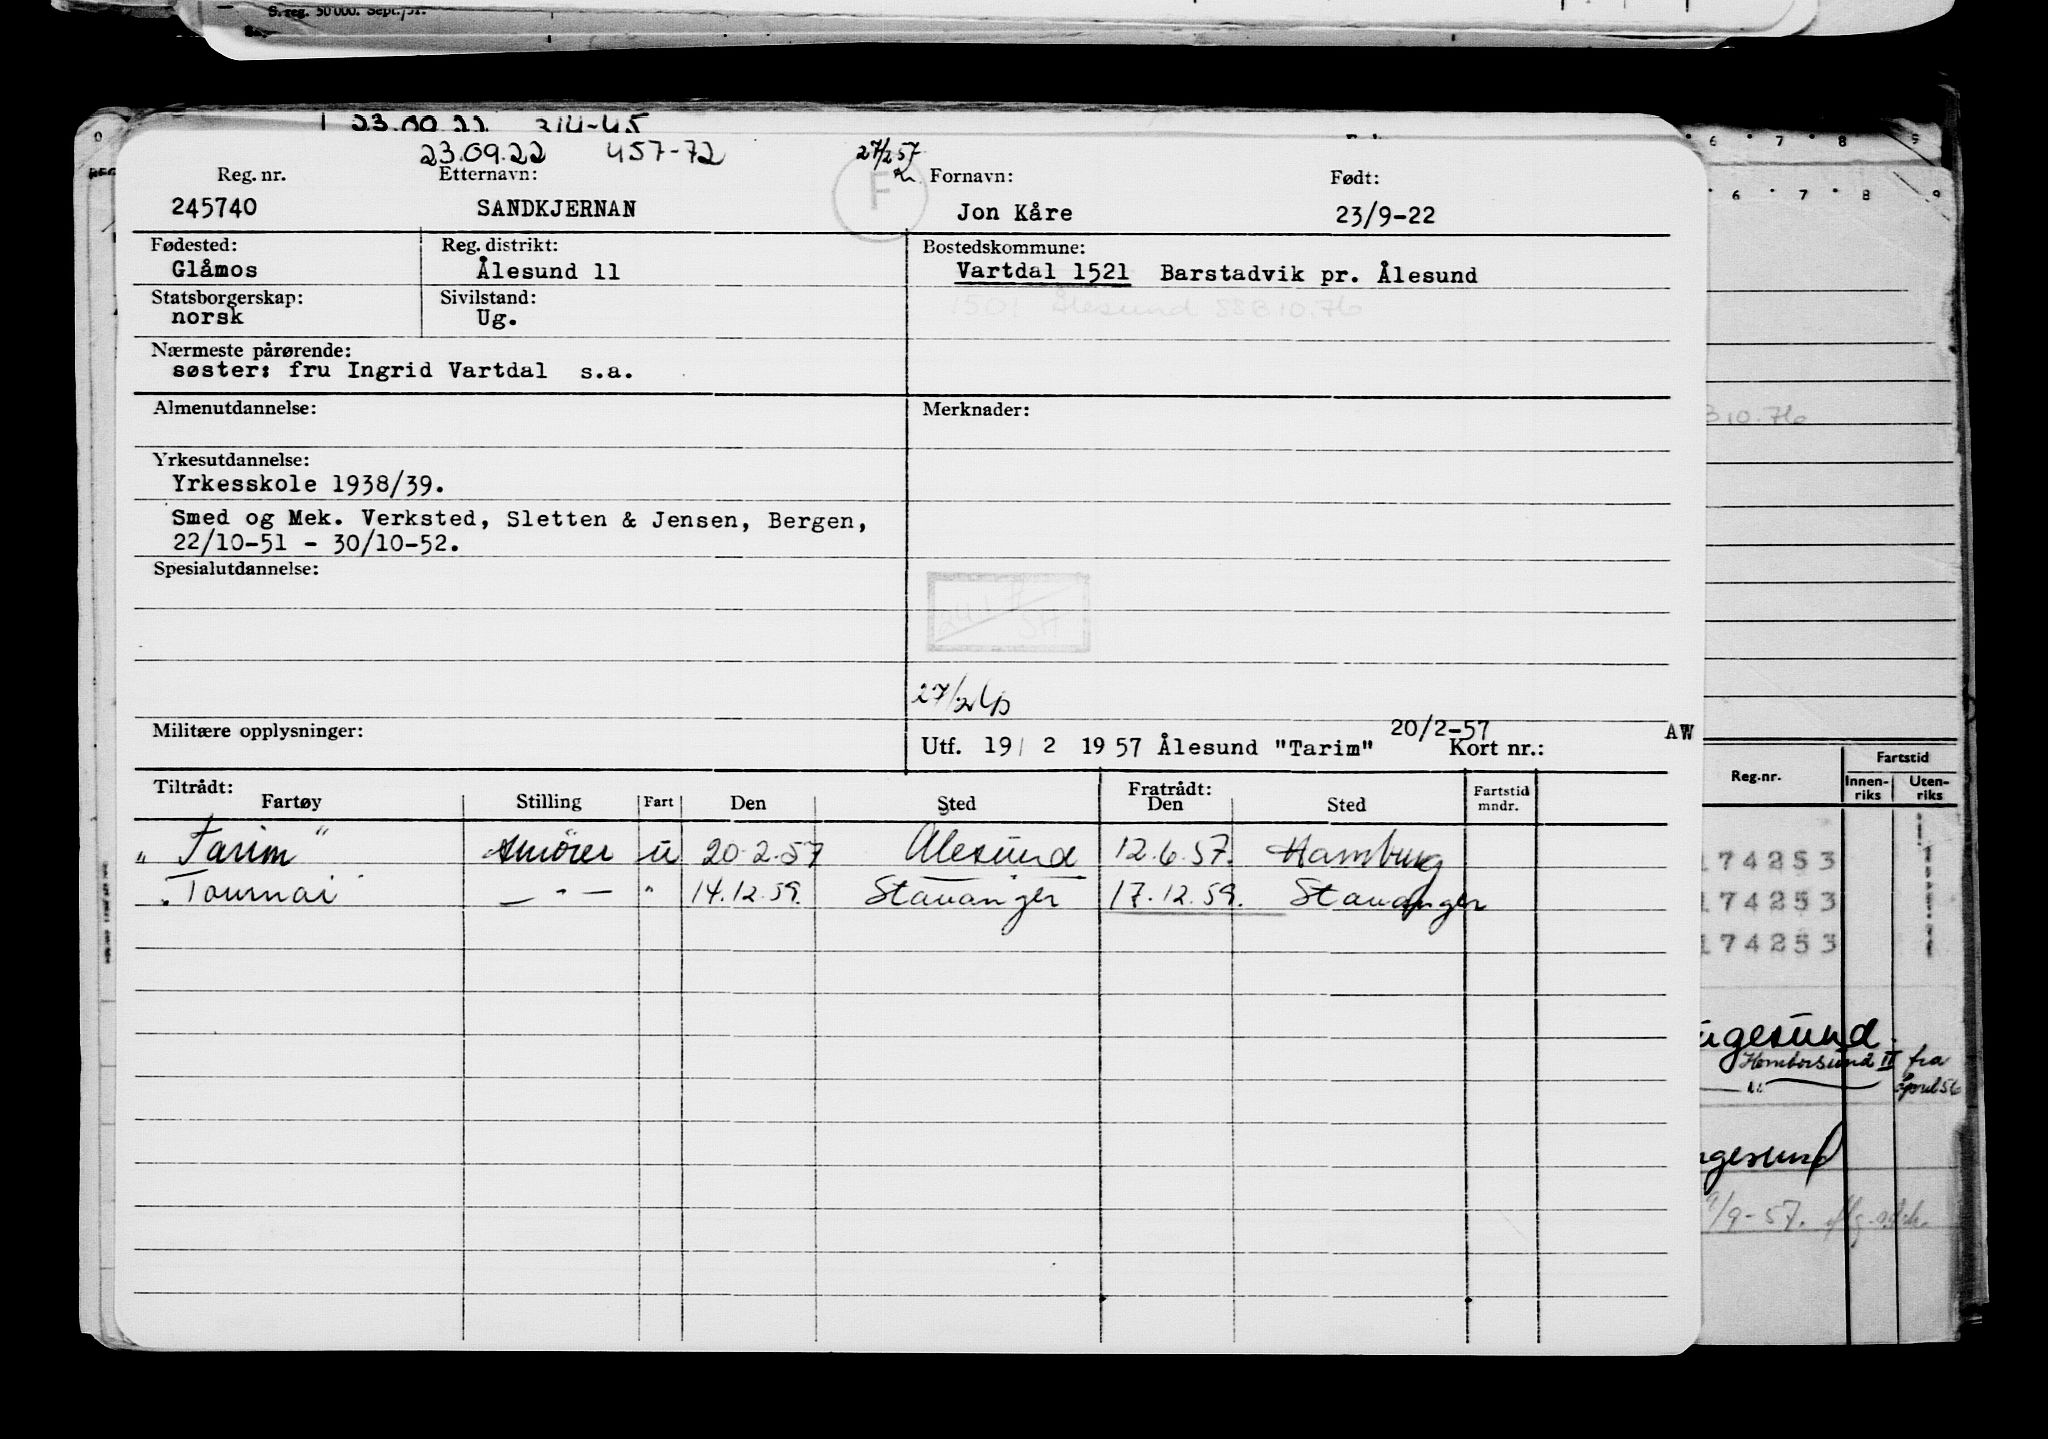 S. reg. 50 000. Sept.
23.09.22 457-72 27/2 57
Reg. nr. Etternavn: F Fornavn: Født:
245740 SANDKJERNAN Jon Kåre 23/9-22
Fødested: Reg. distrikt: Bostedskommune:
Glåmos Ålesund 11 Vartdal 1521 Barstadvik pr. Ålesund
Statsborgerskap: Sivilstand: 1501 Ålesund SSB 10.76
norsk Ug.
Nærmeste pårørende:
søster: fru Ingrid Vartdal s.a.
Almenutdannelse: Merknader:
Yrkesutdannelse:
Yrkesskole 1938/39.
Smed og Mek. Verksted, Sletten & Jensen, Bergen,
22/10-51 - 30/10-52.
Spesialutdannelse:
27/2
Militære opplysninger: 20/2-57 AW
Utf. 19/ 2 1957 Ålesund "Tarim" Kort nr.:
Tiltrådt: Fratrådt: Fartstid
Fartøy Stilling Fart Den Sted Den Sted mndr.
"Tarim" Smører u 20.2.57 Ålesund 12.6.57. Hamburg
"Tournai" — " — " 14.12.59. Stavanger 17.12.59. Stavanger
6 7 8 9
6 7 8 9
B 10.76
Fartstid
Reg.nr. Innen- Uten-
riks riks
174253
174253
174253
ugesund
Homborsund II fra
april 56
ngesund
/9-57.